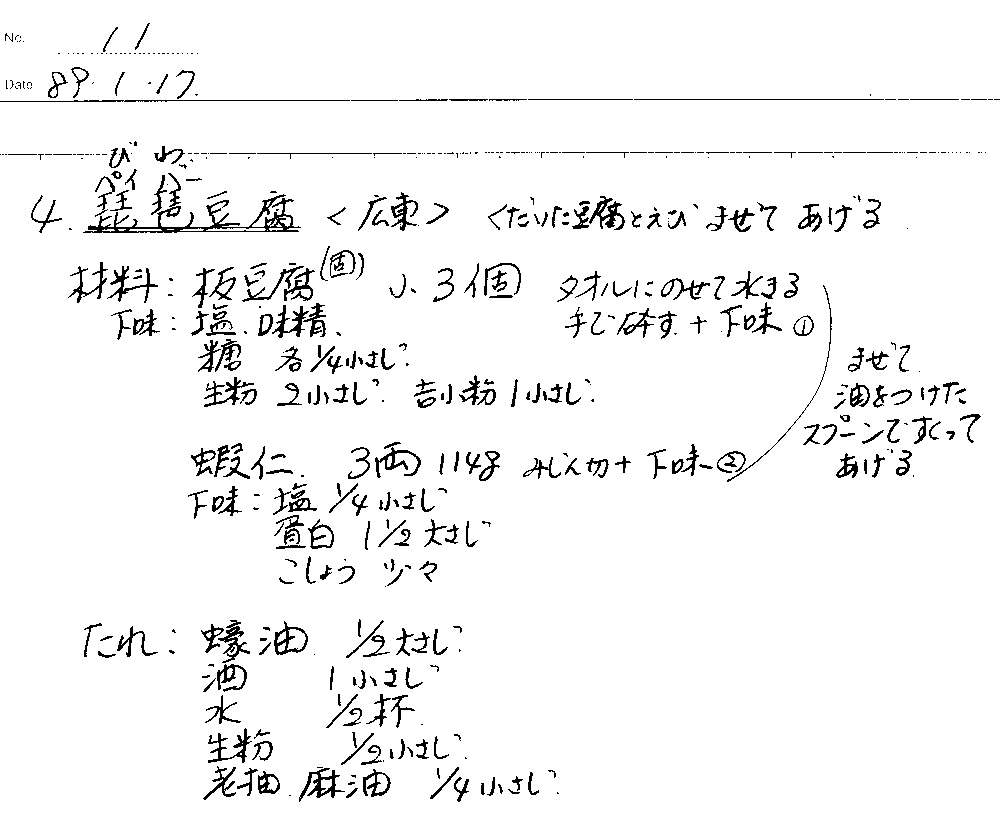 No. 11
Date 89.1.17.
びわ
ペイパー
4. 琵琶豆腐 <広東> くだいた豆腐とえび まぜて あげる
材料: 板豆腐(固) 小 3個 タオルにのせて水きる
下味: 塩、味精、 手で砕す + 下味①
糖 各1/4小さじ
生粉 2小さじ 吉小粉 1小さじ
まぜて
油をつけた
スプーンですくって
あげる
蝦仁 3両 114g みじん切 + 下味②
下味: 塩 1/4小さじ
蛋白 1 1/2 大さじ
こしょう 少々
たれ: 蠔油 1/2大さじ
酒 1小さじ
水 1/2杯
生粉 1/2小さじ
老抽 麻油 1/4小さじ